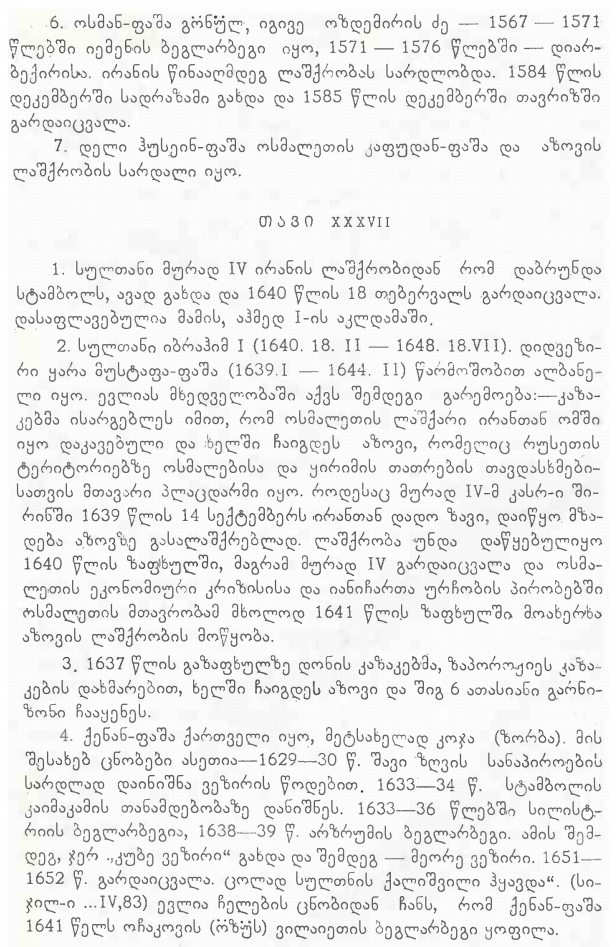 6. ოსმან-ფაშა გöნüლ, იგივე ოზდემირის ძე — 1567 — 1571
წლებში იემენის ბეგლარბეგი იყო, 1571 — 1576 წლებში — დიარ-
ბექირისა. ირანის წინააღმდეგ ლაშქრობას სარდლობდა. 1584 წლის
დეკემბერში სადრაზამი გახდა და 1585 წლის დეკემბერში თავრიზში
გარდაიცვალა.
7. დელი ჰუსეინ-ფაშა ოსმალეთის კაფუდან-ფაშა და აზოვის
ლაშქრობის სარდალი იყო.
თავი XXXVII
1. სულთანი მურად IV ირანის ლაშქრობიდან რომ დაბრუნდა
სტამბოლს, ავად გახდა და 1640 წლის 18 თებერვალს გარდაიცვალა.
დასაფლავებულია მამის, აჰმედ I-ის აკლდამაში.
2. სულთანი იბრაჰიმ I (1640. 18. II — 1648. 18.VII). დიდვეზი-
რი ყარა მუსტაფა-ფაშა (1639.I — 1644. II) წარმოშობით ალბანე-
ლი იყო. ევლიას მხედველობაში აქვს შემდეგი გარემოება:—კაზა-
კებმა ისარგებლეს იმით, რომ ოსმალეთის ლაშქარი ირანთან ომში
იყო დაკავებული და ხელში ჩაიგდეს აზოვი, რომელიც რუსეთის
ტერიტორიებზე ოსმალებისა და ყირიმის თათრების თავდასხმები-
სათვის მთავარი პლაცდარმი იყო. როდესაც მურად IV-მ კასრ-ი ში-
რინში 1639 წლის 14 სექტემბერს ირანთან დადო ზავი, დაიწყო მზა-
დება აზოვზე გასალაშქრებლად. ლაშქრობა უნდა დაწყებულიყო
1640 წლის ზაფხულში, მაგრამ მურად IV გარდაიცვალა და ოსმა-
ლეთის ეკონომიური კრიზისისა და იანიჩართა ურჩობის პირობებში
ოსმალეთის მთავრობამ მხოლოდ 1641 წლის ზაფხულში მოახერხა
აზოვის ლაშქრობის მოწყობა.
3. 1637 წლის გაზაფხულზე დონის კაზაკებმა, ზაპოროჟიეს კაზა-
კების დახმარებით, ხელში ჩაიგდეს აზოვი და შიგ 6 ათასიანი გარნი-
ზონი ჩააყენეს.
4. ქენან-ფაშა ქართველი იყო, მეტსახელად კოჯა (ზორბა). მის
შესახებ ცნობები ასეთია—1629—30 წ. შავი ზღვის სანაპიროების
სარდლად დაინიშნა ვეზირის წოდებით. 1633—34 წ. სტამბოლის
კაიმაკამის თანამდებობაზე დანიშნეს. 1633—36 წლებში სილისტ-
რიის ბეგლარბეგია, 1638—39 წ. არზრუმის ბეგლარბეგი. ამის შემ-
დეგ, ჯერ „კუბე ვეზირი“ გახდა და შემდეგ — მეორე ვეზირი. 1651—
1652 წ. გარდაიცვალა. ცოლად სულთნის ქალიშვილი ჰყავდა“. (სი-
ჯილ-ი ...IV,83) ევლია ჩელების ცნობიდან ჩანს, რომ ქენან-ფაშა
1641 წელს ოჩაკოვის (öზüს) ვილაიეთის ბეგლარბეგი ყოფილა.